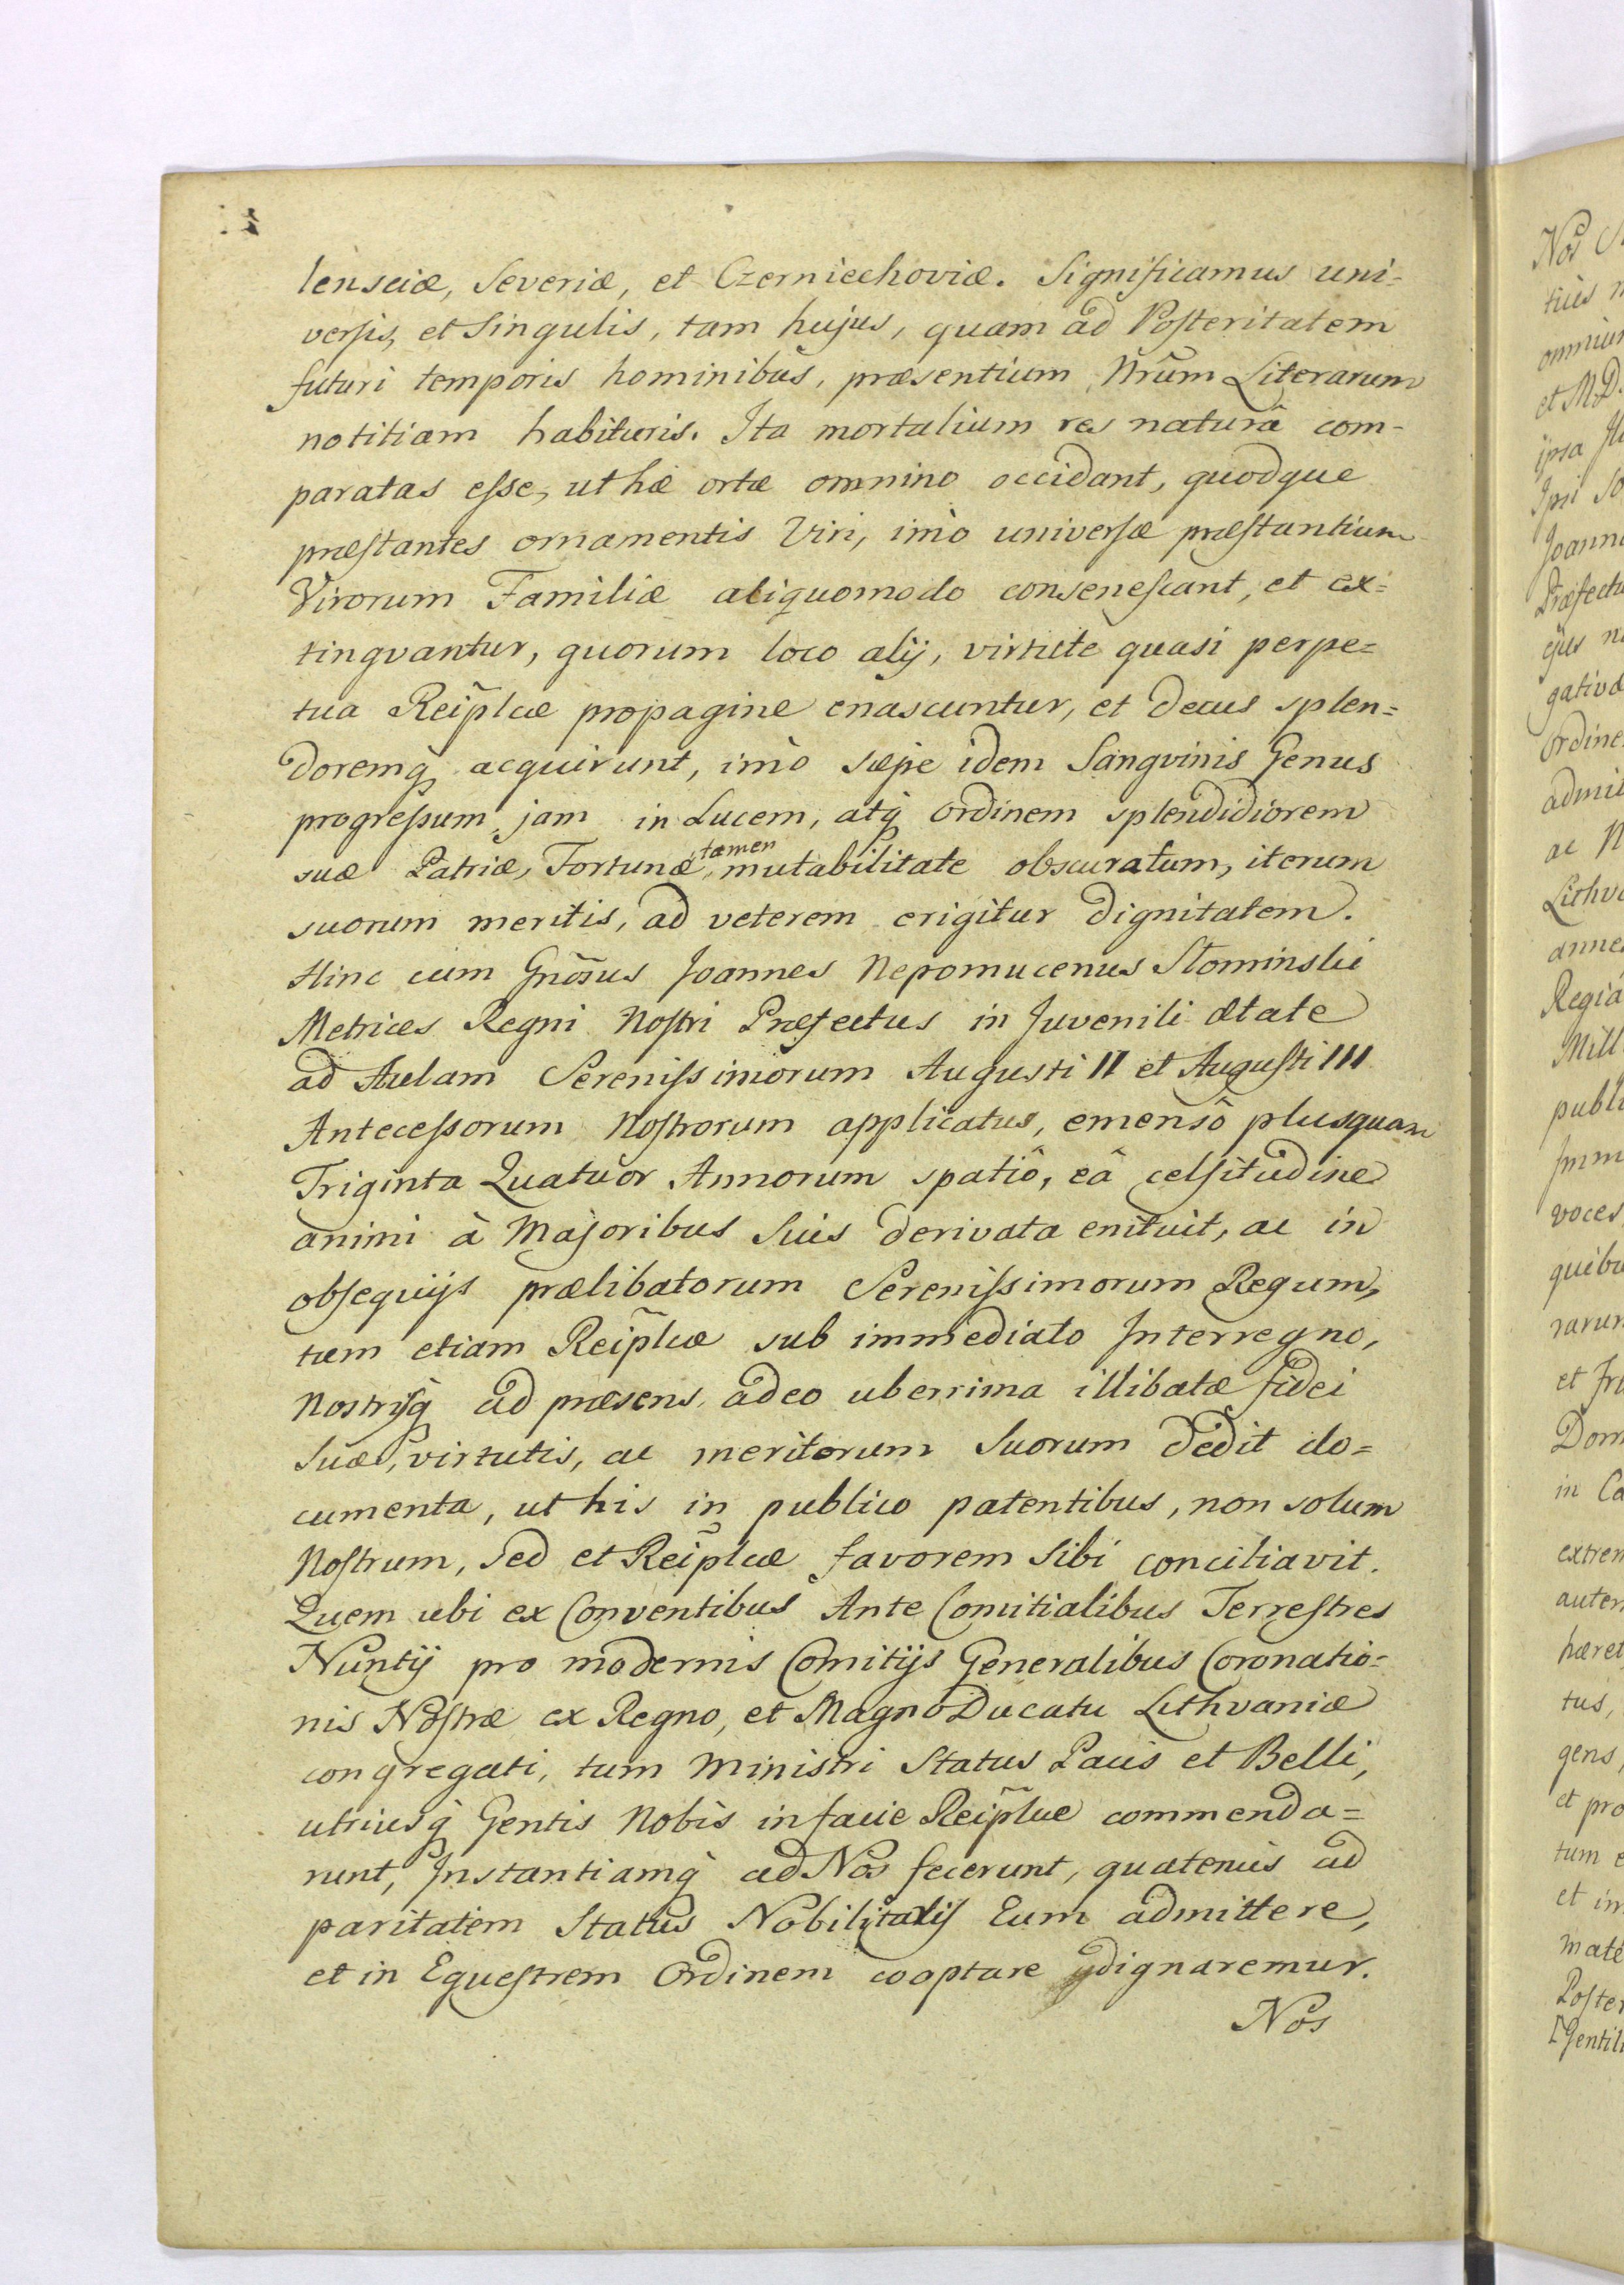 lensciæ, Severiæ, et Czerniechoviæ. Significamus uni=
versis, et Singulis, tam hujus, quam ad Posteritatem
futuri temporis hominibus, præsentium Nrũm Literarum
notitiam habituris. Ita mortalium res naturâ com-
paratas esse, ut hæ ortæ omnino occidant, quodque
præstantes ornamentis Viri, imò universæ præstantium
Virorum Familiæ aliquomodo consenescant, et ex=
tingvantur, quorum loco alij, virtute quasi perpe=
tua Reip̃lcæ propagine enascuntur, et decus splen=
doremq̀ acquirunt, imò sæpe idem Sangvinis Genus
progressum jam in Lucem, atq̀ ordinem splendidiorem
suæ Patriæ, Fortunæ tamen mutabilitate obscuratum, iterum
suorum meritis, ad veterem erigitur dignitatem.
Hinc cum Gnõsus Joannes Nepomucenus Słominski
Metrices Regni Nostri Præfectus in Juvenili ætate
ad Aulam Serenissimorum Augusti II et Augusti III
Antecessorum Nostrorum applicatus, emensô plusquam
Triginta Quatuor Annorum spatiô, eâ celsitudine
animi à Majoribus Suis derivata enituit, ac in
obsequijs prælibatorum Serenissimorum Regum,
tum etiam Reip̃lcæ sub immediato Interregno,
Nostrisq̀ ad præsens, adeo uberrima illibatæ fidei
Suæ, virtutis, ac meritorum Suorum dedit do=
cumenta, ut his in publico patentibus, non solum
Nostrum, sed et Reip̃lcæ favorem Sibi conciliavit.
Quem ubi ex Conventibus Ante Comitialibus Terrestres
Nuntij pro modernis Comitijs Generalibus Coronatio=
nis Nostræ ex Regno, et Magno Ducatu Lithvaniæ
congregati, tum Ministri Status Pacis et Belli,
utriusq̀ Gentis Nobis in facie Reip̃lcæ commenda=
runt, Instantiamq̀ ad Nos fecerunt, quatenus ad
paritatem Status Nobilitaris Eum admittere,
et in Equestrem Ordinem cooptare dignaremur.
Nos